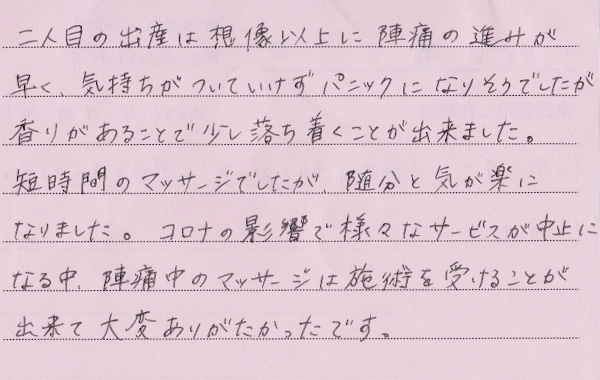 二人目の出産は想像以上に陣痛の進みが
早く、気持ちがついていけずパニックになりそうでしたが
香りがあることで少し落ち着くことが出来ました。
短時間のマッサージでしたが、随分と気が楽に
なりました。コロナの影響で様々なサービスが中止に
なる中、陣痛中のマッサージは施術を受けることが
出来て大変ありがたかったです。